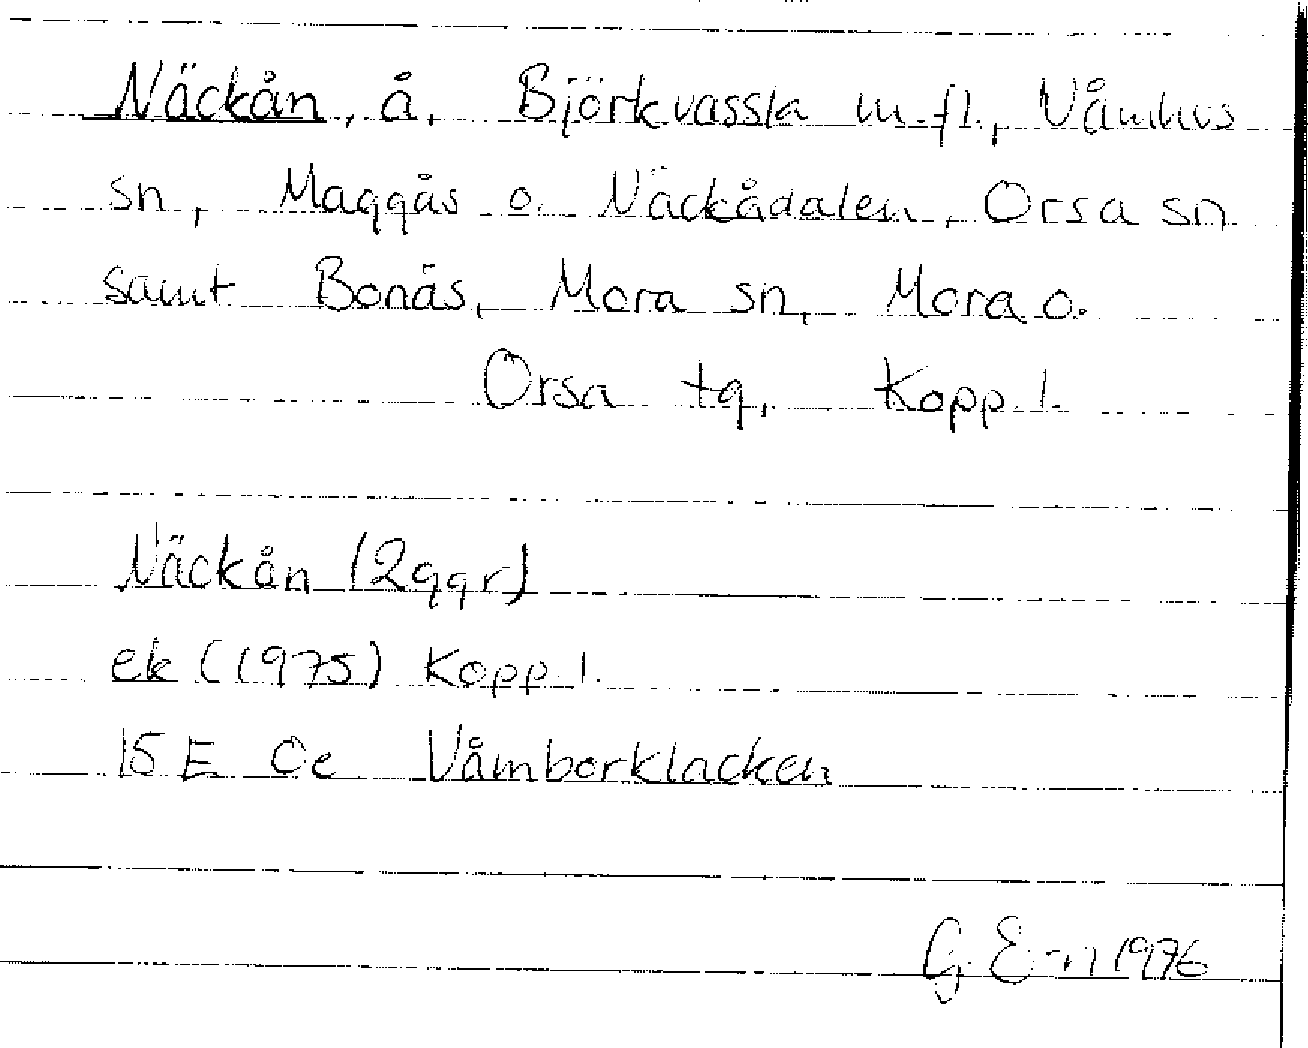 Näckån, å, Björkvassla m.fl., Våmhus
sn, Maggås o. Näckådalen, Orsa sn
samt Bonäs, Mora sn, Mora o.
Orsa tg, Kopp. l.
Näckån (2ggr)
ek (1975) Kopp. l.
15 E Oe Våmborklacken
G. E-n 1976